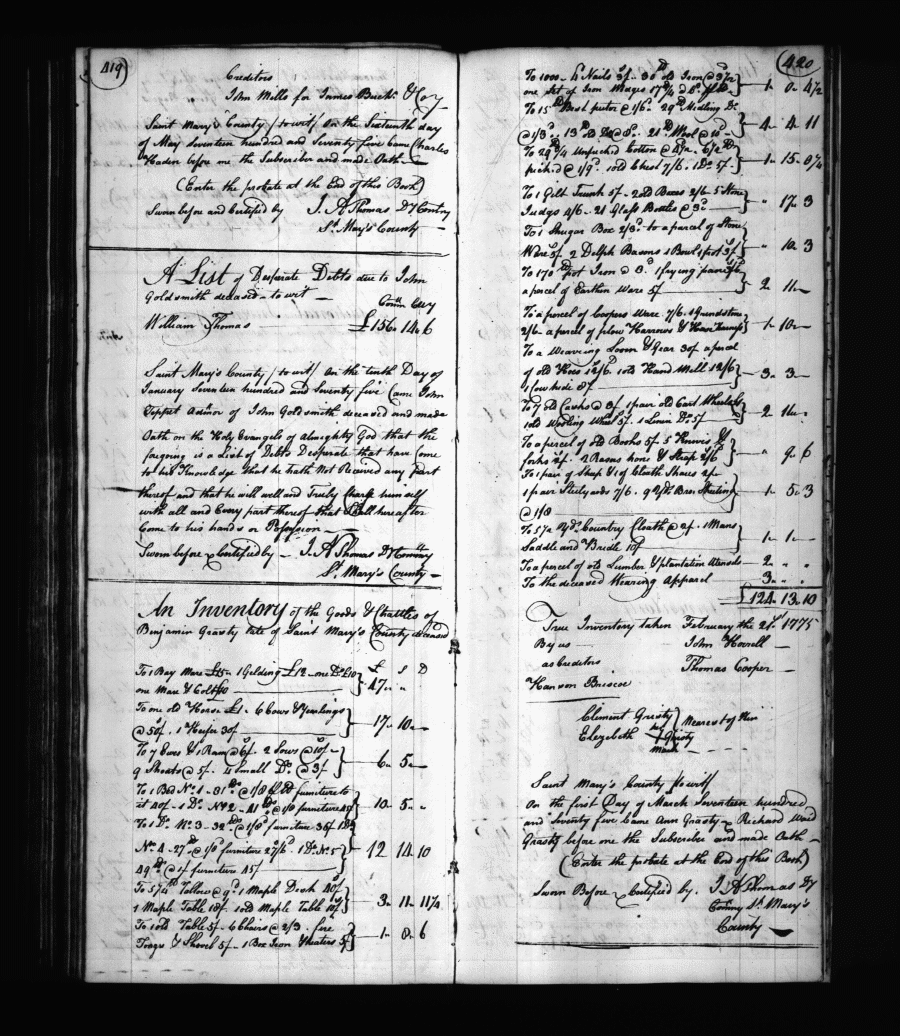 419
Creditors
John Mills for James Buch & Coy
Saint Mary's County (to wit) On the Sixteenth day
of May Seventeen hundred and Seventy five Came Charles
Haden before me the Subscriber and made Oath
(Enter the probate at the End of this Book)
Sworn before and Certified by J. A Thomas Dy Comry
St. Mary's County
A List of Desperate Debts due to John
Goldsmith deceased to wit
Comn Cury
William Thomas £156.14.6
Saint Mary's County (to wit) On the tenth Day of
January Seventeen hundred and Seventy five Came John
Tippet Admor of John Goldsmith deceased and made
Oath on the Holy Evangels of Almighty God that the
foregoing is a List of Debts Desperate that have Come
to his Knowledge that he hath Not Received any part
thereof and that he will well and Truly Charge himself
with all and Every part thereof that Shall hereafter
Come to his hands or Possession
Sworn before & Certified by J. A Thomas Dy Comry
St. Mary's County
An Inventory of the Goods & Chattles of
Benjamin Grasty late of Saint Mary's County deceased
£ S D
To 1 Bay Mare £15 1 Gelding £12 one Do £10
one Mare & Colt £10 } 47 " "
To one old Horse £1 6 Cows & Yearlings
@ 50/. 1 Heifer 30/ } 17 10
To 7 Ewes & 1 Ram @ 6/. 2 Sows @ 10/
9 Shoats @ 5/. 4 Small Do @ 3/ } 6 5
To 1 Bed No. 1 - 81 @ 1/8 furniture to
it 40/ - 1 Do No 2 - 41 @ 1/8 furniture 45/ } 10 5 "
To 1 Do No 3 - 32 @ 1/8 furniture 36/ 1 Do
No. 4 - 27 @ 1/8 furniture 27/6 1 Do No. 5
49 @ 1/ furniture 45/ } 12 14 10
To 57 Tallow @ 9d 1 Maple Desk 40/
1 Maple Table 18/ 1 old Maple Table 10/ } 3 11 11½
To 1 old Table 5/ 6 Chairs @ 2/3 fire
Tongs & Shovel 5/ 1 Box Iron & heaters 5/ } 1 8 6
420
To 1000 4 Nails 3/ 30 old Iron @ 3½
one Set of Iron Wedges 17¼ } 1 0 4½
To 15 Best pewter @ 1/6 29 Midling Do
@ 1/3 13 old Do @ 8 21 Wool @ 10 } 4 4 11
To 29¼ Unpicked Cotton @ 6½ Do
picked @ 1/9 1 old Chest 7/6 1 Do 5/ } 1 15 0¼
To 1 Gilt Trunk 5/ 2 old Boxes 2/6 5 Stone
Juggs 4/6 21 Glass Bottles @ 3d } " 17 3
To 1 Shugar Box 2/3 to a parcel of Stone
Ware 5/ 2 Delph Basons 1 Bowl 1 pot 3/ } " 10 3
To 170 pot Iron @ 3 1 frying pan
a parcel of Earthen Ware 5/ } 2 11
To a parcel of Coopers Ware 7/6 1 Grindstone
2/6 a parcel of plow Harrows & Horse Harness } 1 10
To a Weaving Loom & Gear 30/ a parcel
of old Hoes 12/6 1 old Hand Mill 12/6
1 Cow hide 8/ } 3 3
To 7 old Casks @ 3/ 1 pair old Cart Wheels
1 old Wooling Wheel 5/. 1 Linin Do 5/ } 2 11 "
To a parcel of old Books 5/. 5 Knives &
forks 2/. 2 Rasors hone & Strap 2/6 } " 9 6
To 1 pair of Sheep & 1 of Cloath Shears 2/
1 pair Steelyards 7/6. 9 yds Brn Sheeting
@ 1/8 } 1 5 3
To 5½ Yds Country Cloath @ 2/. 1 Mans
Saddle and Bridle 10/ } 1 1
To a parcel of old Lumber & plantation Utensils 2 " "
To the deceased Wearing Apparel 3 " "
£124.13.10
True Inventory taken February the 21st 1775
By us John Howell
as Creditors Thomas Cooper
Hanson Briscoe
Clement Grasty
Elezebeth Grasty } Nearest of Kin
mark
Saint Mary's County (to wit)
On the first Day of March Seventeen hundred
and Seventy five Came Ann Grasty & Richard Ward
Grasty before me the Subscriber and made Oath
(Enter the probate at the End of this Book)
Sworn Before & Certified by. J A Thomas Dy
Comry St. Mary's
County